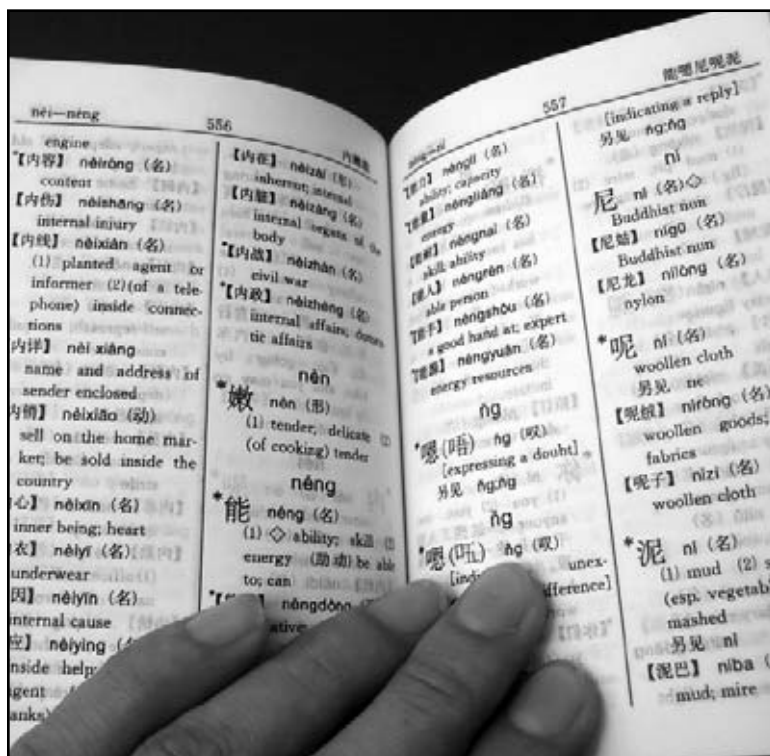 nèi—néng
556
内嫩能
engine
*【内容】 nèiróng (名)
content
【内伤】 nèishāng (名)
internal injury
【内线】 nèixiàn (名)
(1) planted agent or
informer (2) (of a tele-
phone) inside connec-
tions
内详】 nèi xiáng
name and address of
sender enclosed
内销】 nèixiāo (动)
sell on the home mar-
ket; be sold inside the
country
心】 nèixīn (名)
inner being; heart
衣】 nèiyī (名)
underwear
因】 nèiyīn (名)
internal cause
应】 nèiyìng (名)
inside help;
agent
anks)
【内在】 nèizài (形)
inherent; internal
【内脏】 nèizàng (名)
internal organs of the
body
*【内战】 nèizhàn (名)
civil war
*【内政】 nèizhèng (名)
internal affairs; domes-
tic affairs
nèn
*嫩 nèn (形)
(1) tender; delicate (2)
(of cooking) tender
néng
*能 néng (名)
(1) ◇ ability; skill (2)
energy (助动) be able
to; can
néngdòng
557
能嗯尼呢泥
【能力】 nénglì (名)
ability; capacity
【能量】 néngliàng (名)
energy
【能耐】 néngnai (名)
skill; ability
【能人】 néngrén (名)
able person
【能手】 néngshǒu (名)
a good hand at; expert
【能源】 néngyuán (名)
energy resources
ńg
*嗯(唔) ńg (叹)
[expressing a doubt]
另见 ňg; ǹg
ňg
*嗯(㕶) ňg (叹)
unex-
fference]
[indicating a reply]
另见 ńg; ňg
ní
尼 ní (名) ◇
Buddhist nun
【尼姑】 nígū (名)
Buddhist nun
【尼龙】 nílóng (名)
nylon
*呢 ní (名)
woollen cloth
另见 ne
【呢绒】 níróng (名)
woollen goods;
fabrics
【呢子】 nízi (名)
woollen cloth
*泥 ní (名)
(1) mud (2)
(esp. vegetab
mashed
另见 nì
【泥巴】 níba
mud; mire